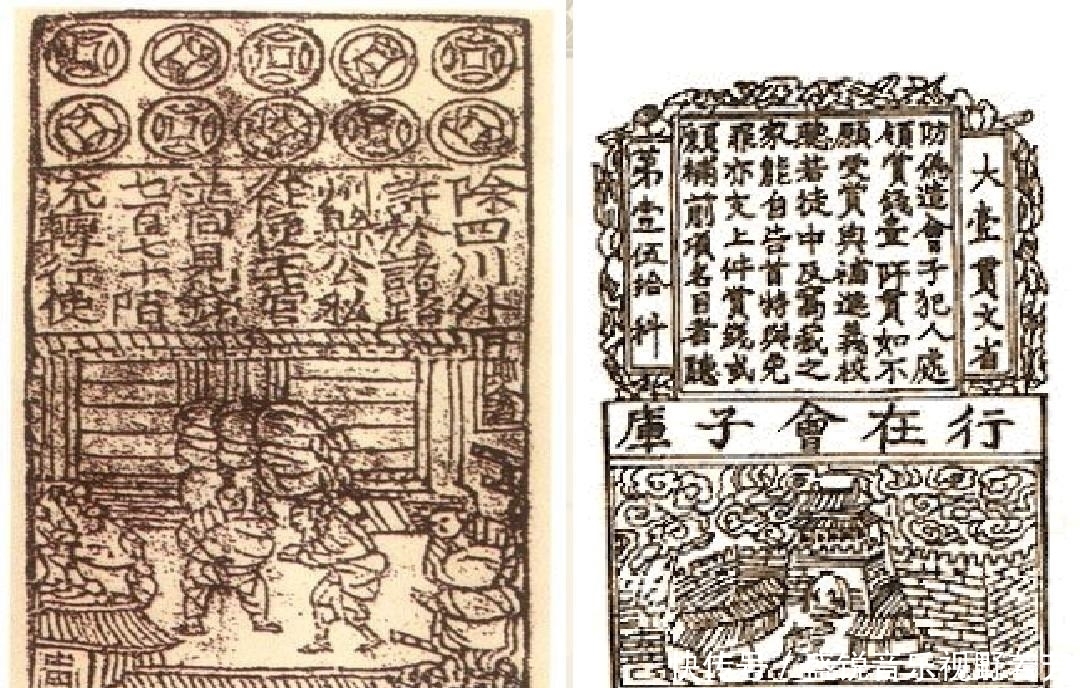 除四川外
許於諸路
州縣公私
從便主管
並同見錢
七百七十陌
流轉行使
大壹貫文省
防偽造會子犯人處
領賞錢壹阡貫如不
願受賞與補進義校
聽若徒中及窩藏之
家能自告首特與免
罪亦支上件賞錢或
願補前項名目者聽
第壹伍拾料
行在會子庫
快传号 /